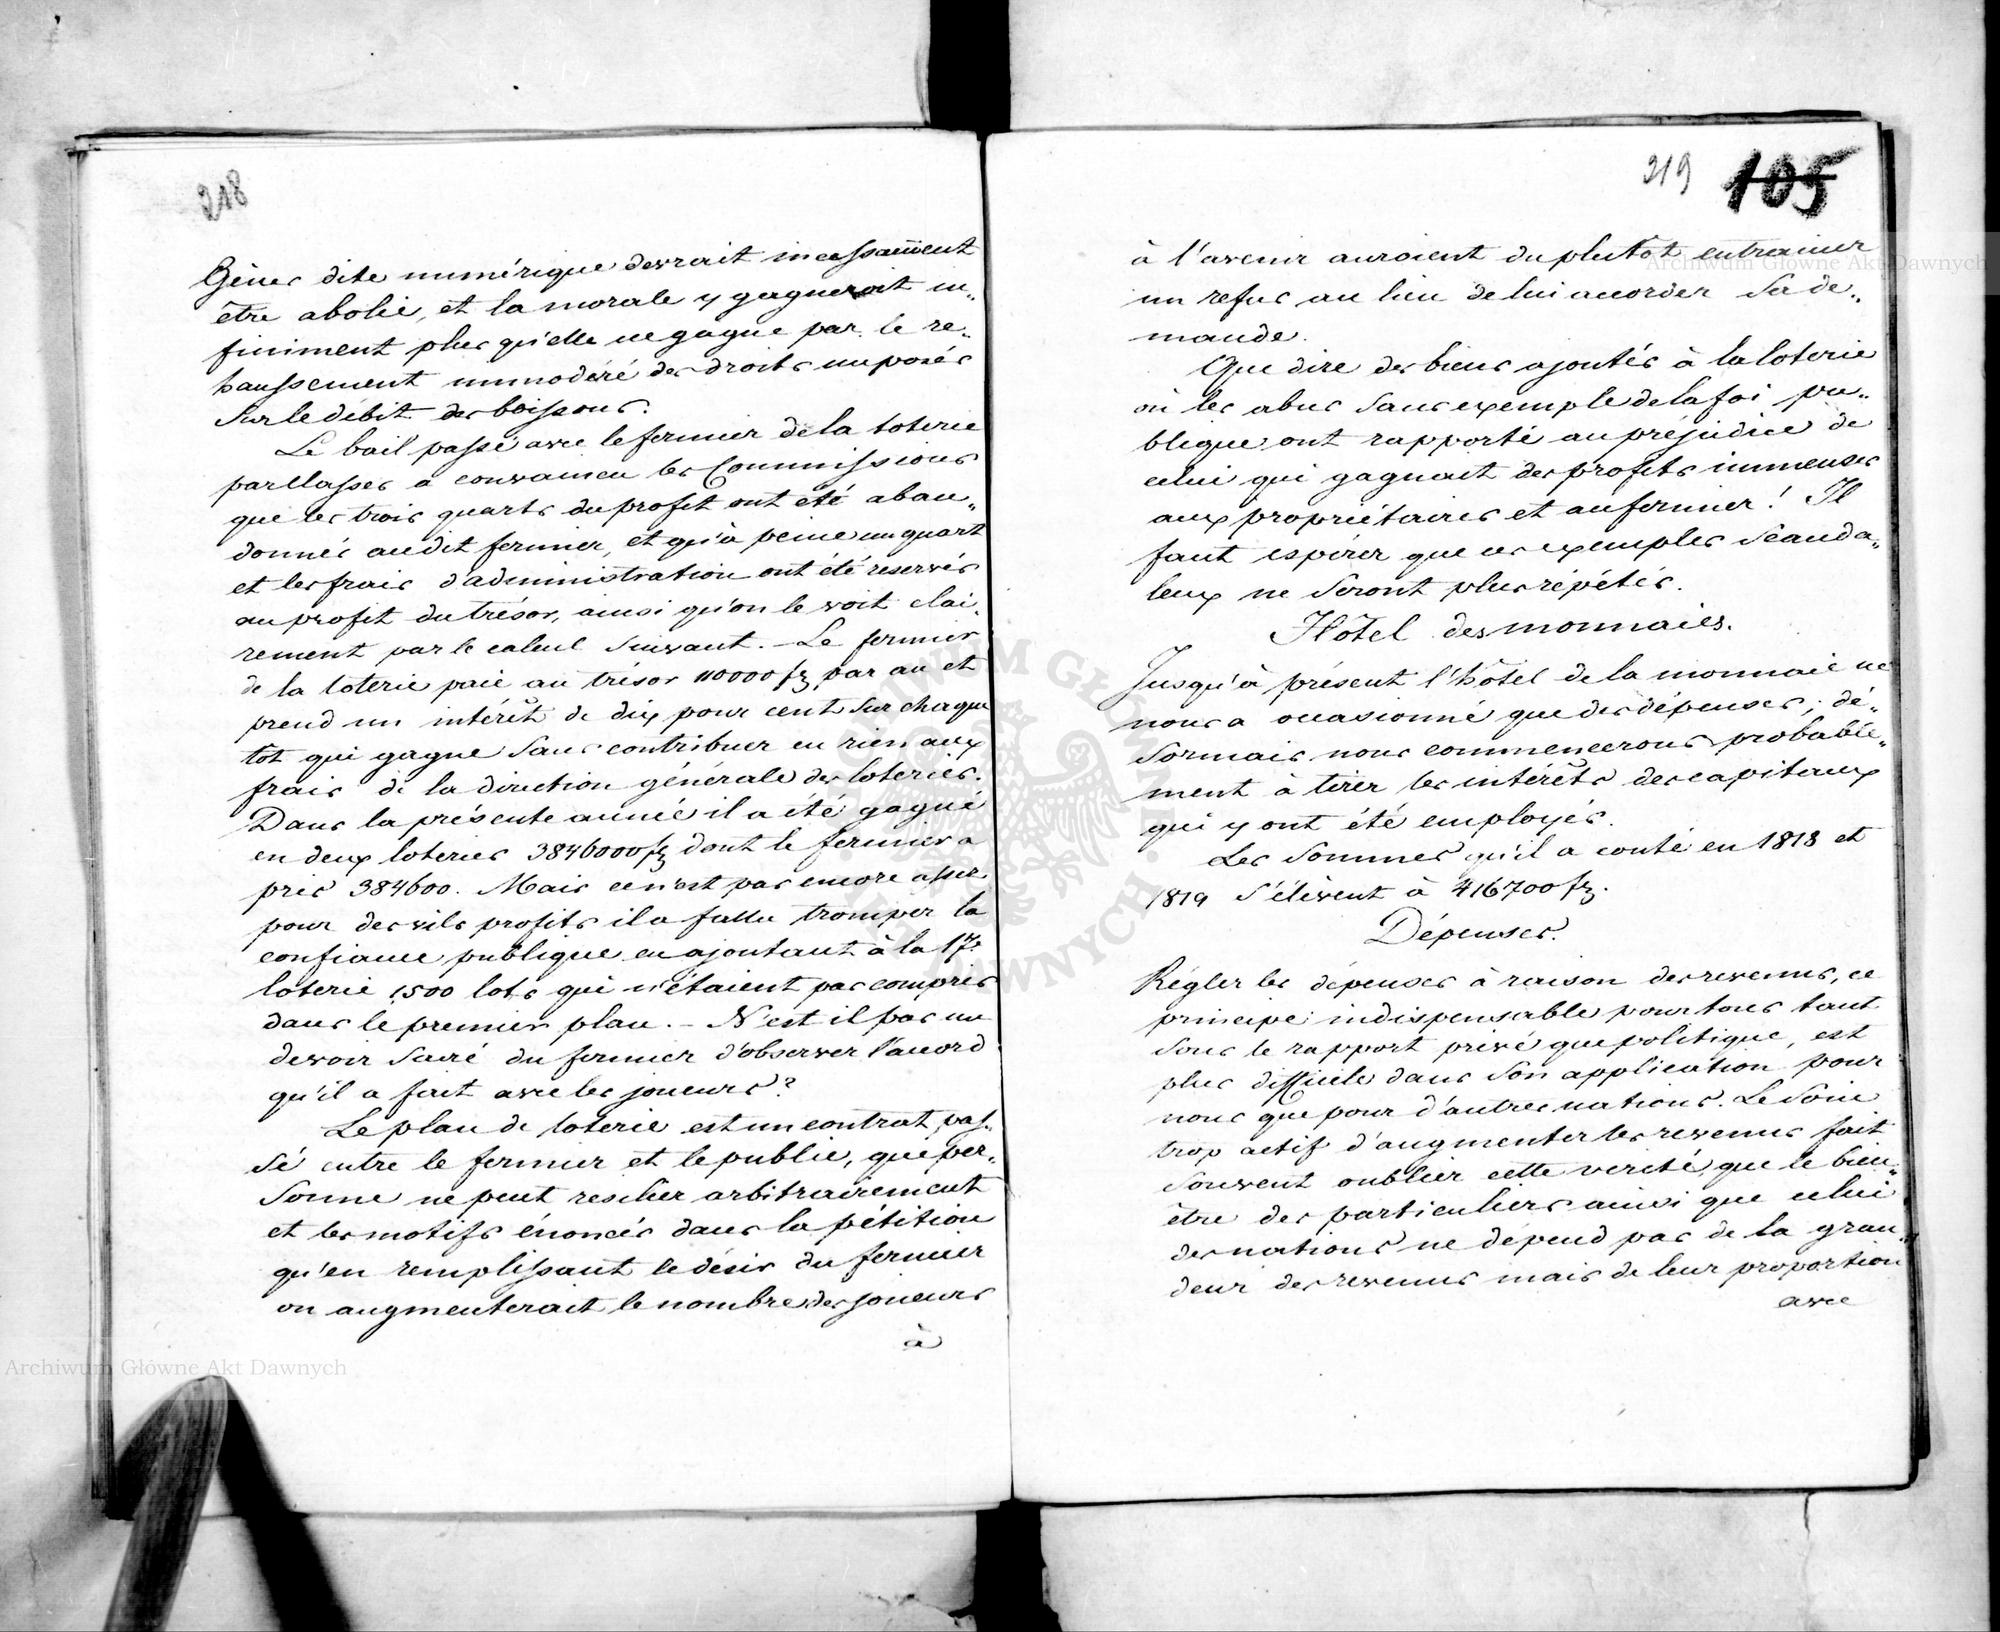 218
Gênes dite numérique devrait incessament
être abolie, et la morale y gagnerait in„
finiment plus qu'elle ne gagne par le re„
haussement immodéré des droits imposés
sur le débit des boissons.
Le bail passé avec le fermier de la loterie
par classes a convaincu les Commissions
que les trois quarts du profit ont été aban„
donnés audit fermier, et qu'à peine un quart
et les frais d'administration ont été reservés
au profit du trésor, ainsi qu'on le voit clai„
rement par le calcul suivant. – Le fermier
de la loterie paie au trésor 110000 fz par an et
prend un intérêt de dix pour cent sur chaque
lot qui gagne sans contribuer en rien aux
frais de la direction générale des loteries.
Dans la présente année il a été gagné
en deux loteries 3846000 fz dont le fermier a
pris 384600. Mais ce n'est pas encore assez
pour des vils profits il a fallu tromper la
confiance publique en ajoutant à la 17e
loterie 1,500 lots qui n'étaient pas compris
dans le premier plan. – N'est il pas un
devoir sacré du fermier d'observer l'accord
qu'il a fait avec les joueurs?
Le plan de loterie est un contrat pas„
sé entre le fermier et le public, que per„
sonne ne peut resilier arbitrairement
et les motifs énoncés dans la pétition
qu'en remplissant le désir du fermier
on augmenterait le nombre des joueurs
à
219 105
à l'avenir auroient du plutôt entrainer
un refus au lieu de lui accorder sa de„
mande.
Que dire des biens ajoutés à la loterie
où les abus sans exemple de la foi pu„
blique ont rapporté au préjudice de
celui qui gagnait des profits immenses
aux propriétaires et au fermier! Il
faut espérer que ces exemples scanda„
leux ne seront plus répétés.
Hôtel des monnaies.
Jusqu'à présent l'hôtel de la monnaie ne
nous a occasionné que des dépenses; dé„
sormais nous commencerons probable„
ment à tirer les intérêts des capitaux
qui y ont été employés.
Les sommes qu'il a conté en 1818 et
1819 s'élèvent à 416700 fz.
Dépenses.
Régler les dépenses à raison des revenus, ce
principe indispensable pour tous tant
sous le rapport privé que politique, est
plus difficile dans son application pour
nous que pour d'autres nations. Le soin
trop actif d'augmenter les revenus fait
souvent oublier cette verité que le bien„
être des particuliers ainsi que celui
des nations ne dépend pas de la gran„
deur des revenus mais de leur proportion
avec
Archiwum Główne Akt Dawnych
Archiwum Główne Akt Dawnych
ARCHIWUM GŁÓWNE AKT DAWNYCH